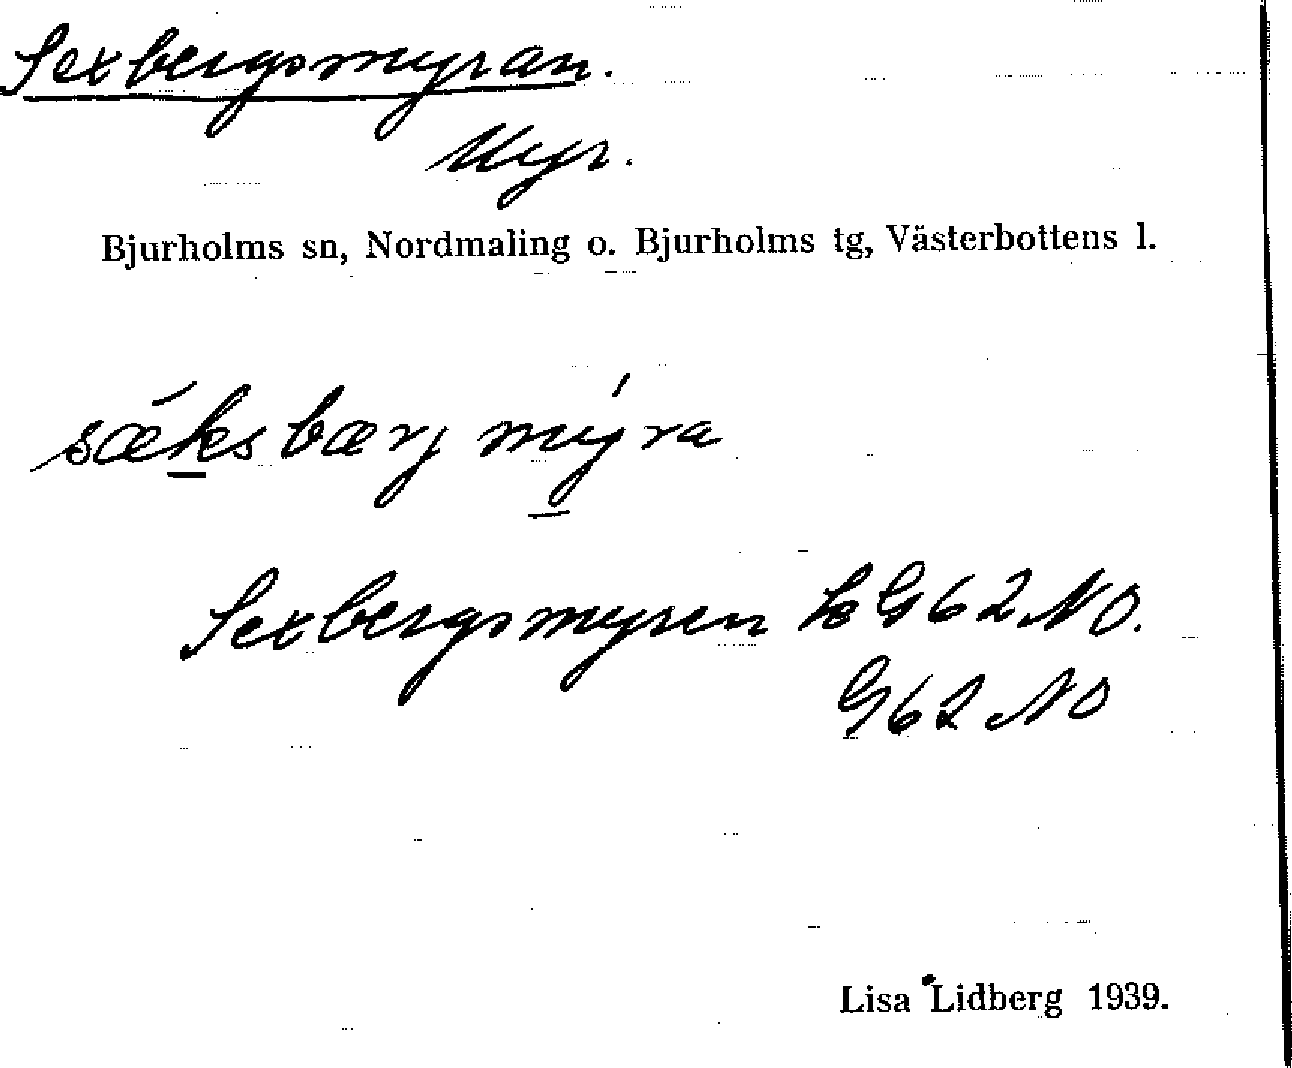 Sexbergsmyran.
Myr.
Bjurholms sn, Nordmaling o. Bjurholms tg, Västerbottens l.
sǽksbærj mýra
Sexbergsmyren G62 NO.
G62 NO
Lisa Lidberg 1939.